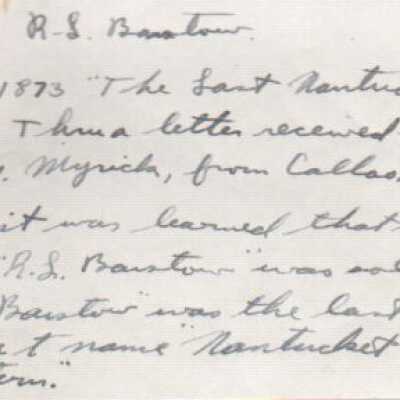 R.L. Barstow.
1873 "The Last Nantuc
Thru a letter received
. Myrick, from Callao,
it was learned that
"R.L. Barstow" was sol
Barstow" was the last
t name "Nantucket
tern."